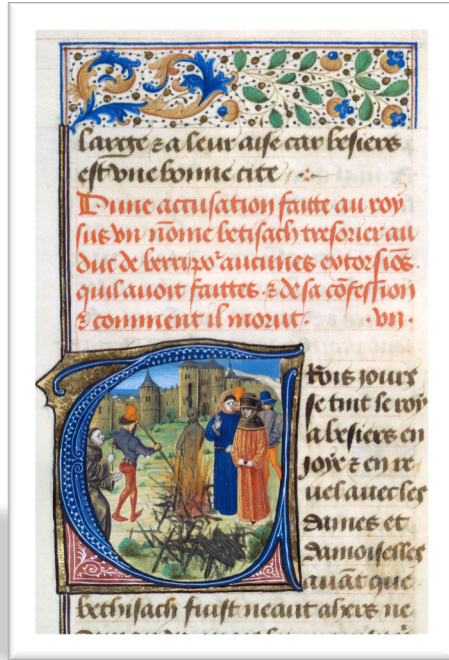 large & a leur aise car besiers
est vne bonne cite
Dune accusation faitte au roy
sus vn nōme betisach tresorier au
duc de berri po^r aucunes extorsiōs.
quil auoit faittes. & de sa cōfession
& comment il morut. · vii ·
Trois jours
se tint le roy
a besiers en
joye & en re
uel auec les
dames et
damoiselles
auāt que
bethisach fuist neant